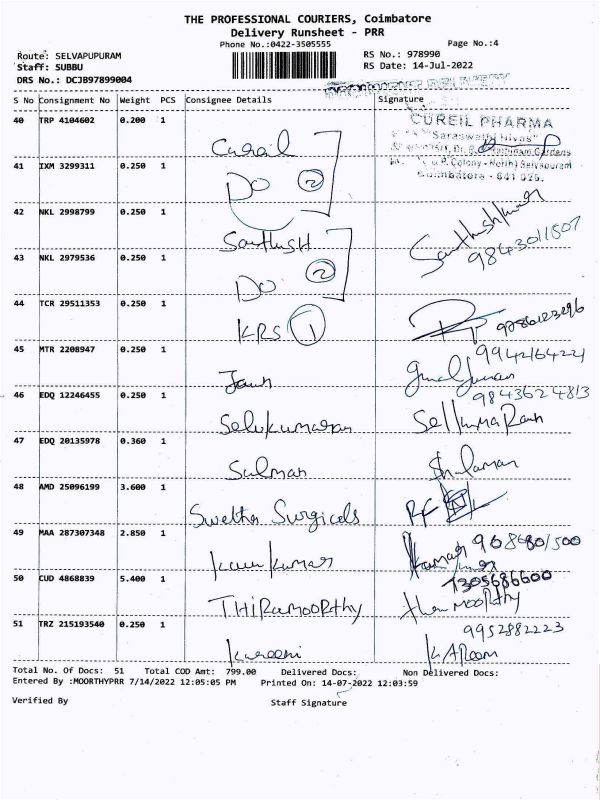 THE PROFESSIONAL COURIERS, Coimbatore
Delivery Runsheet - PRR
Phone No.:0422-3505555
Page No.:4
Route: SELVAPUPURAM
RS No.: 978990
Staff: SUBBU
RS Date: 14-Jul-2022
DRS No.: DCJB97899004
S No Consignment No Weight PCS Consignee Details Signature
40 TRP 4104602 0.200 1 Cureil
CUREIL PHARMA
"Saraswathi Nivas"
Gardens
Colony - North) Selvapuram
Coimbatore - 641 026.
41 IXM 3299311 0.250 1 Do 2
42 NKL 2998799 0.250 1 Santhush
9843011507
43 NKL 2979536 0.250 1 Do 2
44 TCR 29511353 0.250 1 KRS 1
9786123296
45 MTR 2208947 0.250 1
9942164221
46 EDQ 12246455 0.250 1 Selvkumaran
9843624813
47 EDQ 20135978 0.360 1 Sulman
48 AMD 25096199 3.600 1 Swetha Surgicals
49 MAA 287307348 2.850 1
50 CUD 4868839 5.400 1 THIRAMOORTHY
7305686600
51 TRZ 215193540 0.250 1
9952882223
Total No. Of Docs: 51 Total COD Amt: 799.00 Delivered Docs: Non Delivered Docs:
Entered By :MOORTHYPRR 7/14/2022 12:05:05 PM Printed On: 14-07-2022 12:03:59
Verified By Staff Signature